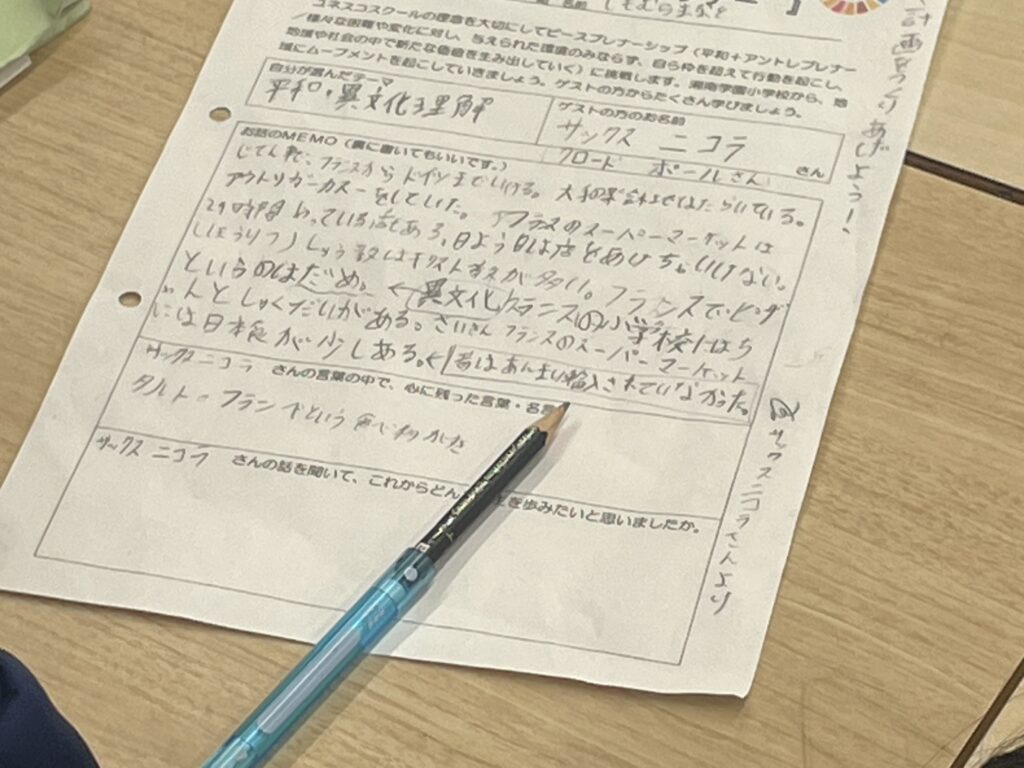 しもむらまなと
ユネスコスクールの理念を大切にしてピースプレナーシップ(平和+アントレプレナー
様々な困難や変化に対し、与えられた環境のみならず、自ら枠を超えて行動を起こし、
地域や社会の中で新たな価値を生み出していく)に挑戦します。湘南学園小学校から、地
域にムーブメントを起こしていきましょう。ゲストの方からたくさん学びましょう。
自分が選んだテーマ
平和・異文化理解
ゲストの方のお名前
サックス ニコラ
クロード ポールさん
さん
お話のMEMO(裏に書いてもいいです。)
じてん車で、フランスからドイツまでいける。大和 はたらいている。
アウトリガーカヌーをしていた。フランスのスーパーマーケットは
24時間 っている店もある、日よう日は店をあけちゃいけない。
しゅう教はキリスト教が多い。フランスでは
というのはだめ。←異文化 フランスの小学校にはち
んとしゅくだいがある。さいきんフランスのスーパーマーケット
には日本食が少しある。←昔はあんまり輸入されていなかった。
サックスニコラ さんの言葉の中で、心に残った言葉・名言
タルト・フランベという食べ物がある
サックス ニコラ さんの話を聞いて、これからどん を歩みたいと思いましたか。
計画をつくりあげよう!
サックスニコラさんより